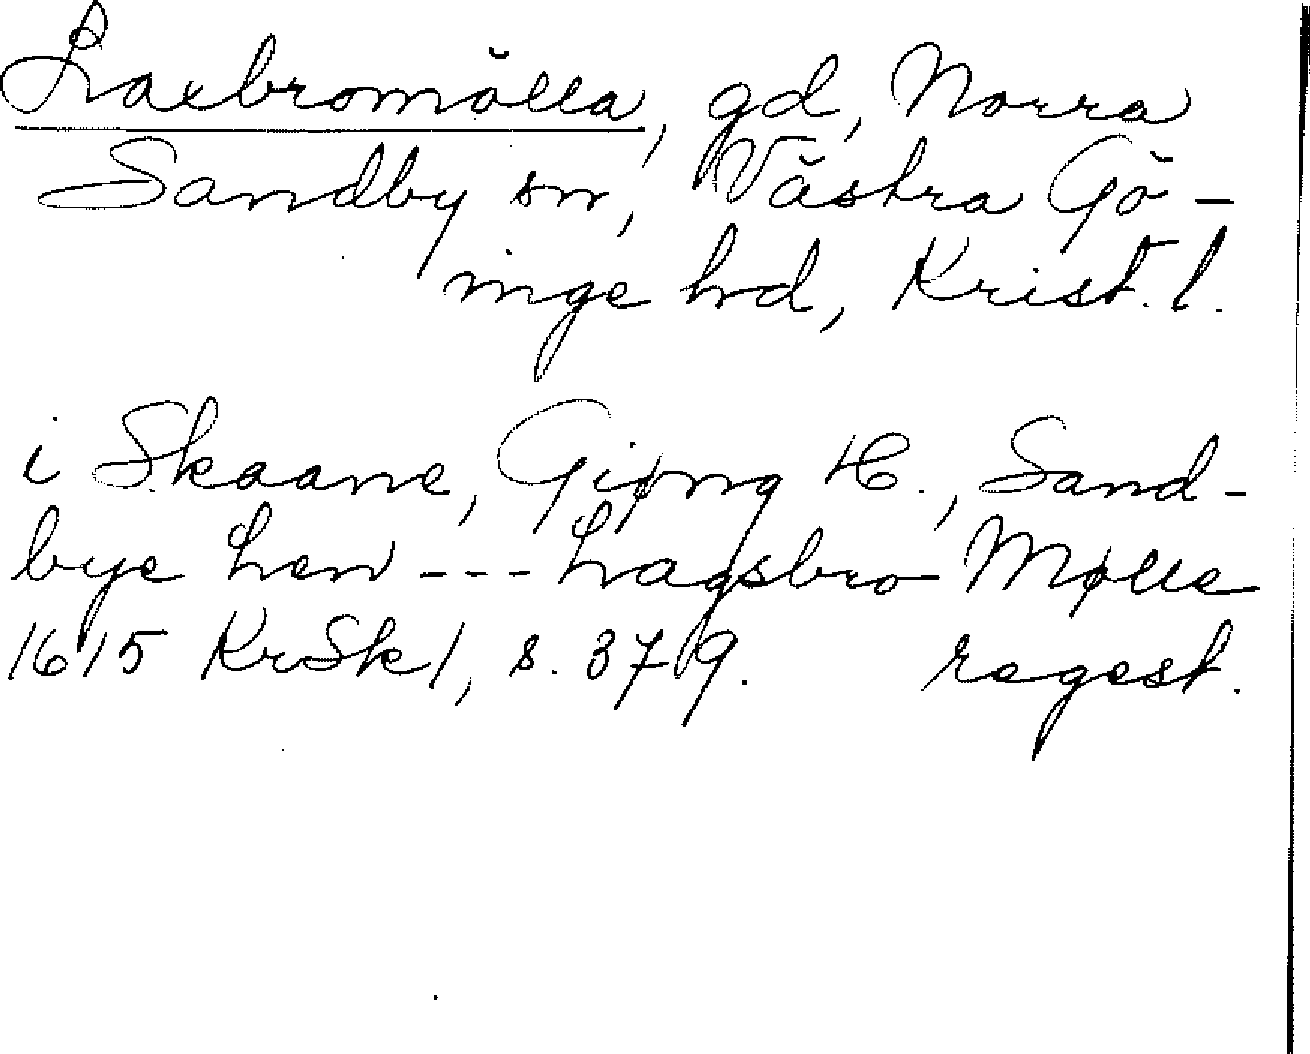 Laxbromölla, gd, Norra
Sandby sn, Västra Gö-
inge hd, Krist. l.
i Skaane, Giøng H., Sand-
bye Len --- Lagsbro Mølle
1615 KrSk 1, s. 379. regest.